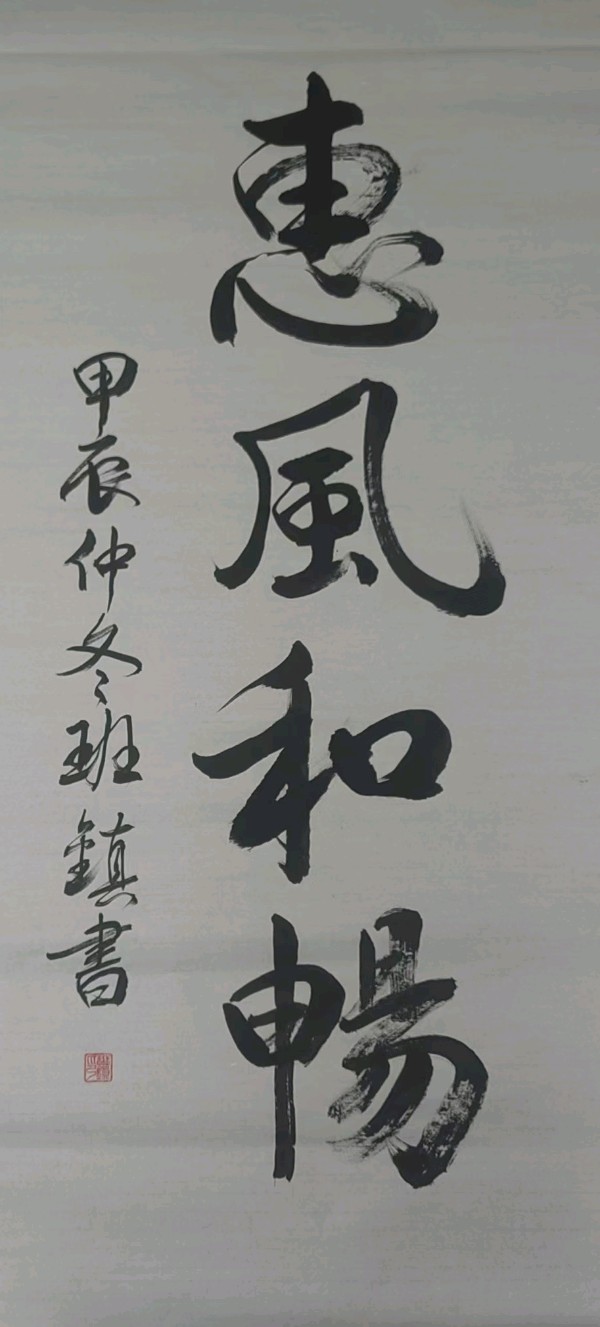 惠風和暢
甲辰仲冬班鎮書